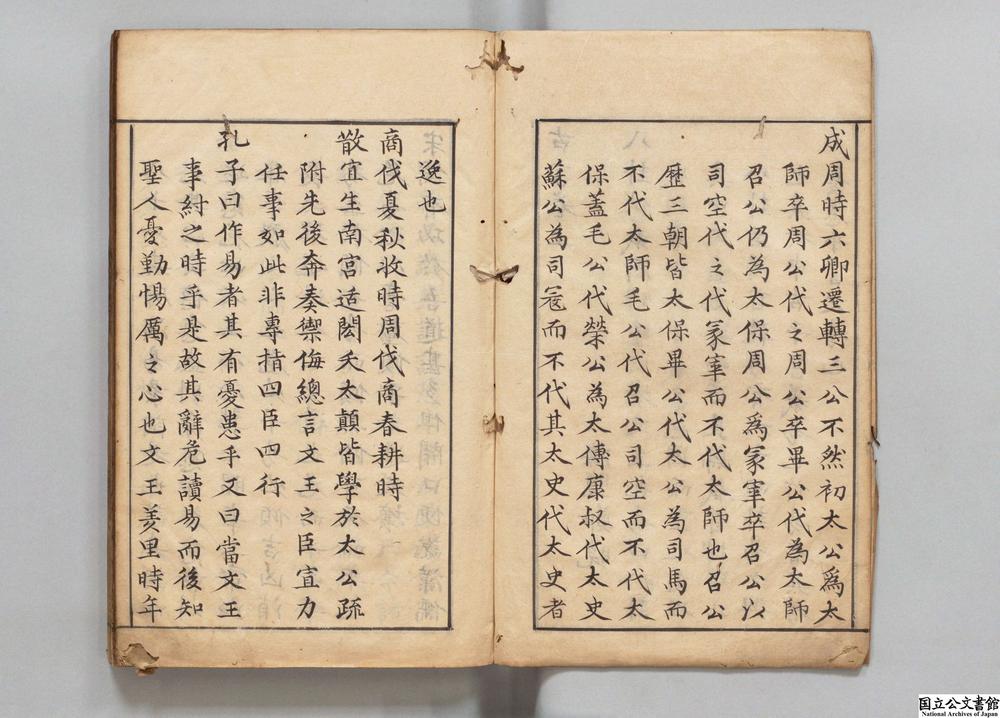 成周時六卿遷轉三公不然初太公爲太
師卒周公代之周公卒畢公代為太師
召公仍為太保周公爲冢宰卒召公以
司空代之代冢宰而不代太師也召公
歷三朝皆太保畢公代太公為司馬而
不代太師毛公代召公司空而不代太
保蓋毛公代榮公為太傅康叔代太史
蘇公為司冦而不代其太史代太史者
逸也
商伐夏秋收時周伐商春耕時
散宜生南宮适閎夭太顛皆學於太公疏
附先後奔奏禦侮總言文王之臣宣力
任事如此非專指四臣四行
孔子曰作易者其有憂患乎又曰當文王
事紂之時乎是故其辭危讀易而後知
聖人憂勤惕厲之心也文王羑里時年
国立公文書館
National Archives of Japan